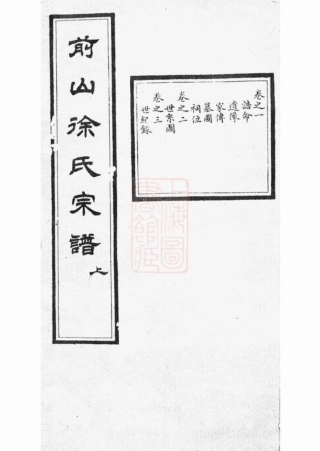 前山徐氏宗譜 上
卷之一
誥命
遺像
家傳
墓圖
祠位
卷之二
世系圖
卷之三
世紀錄